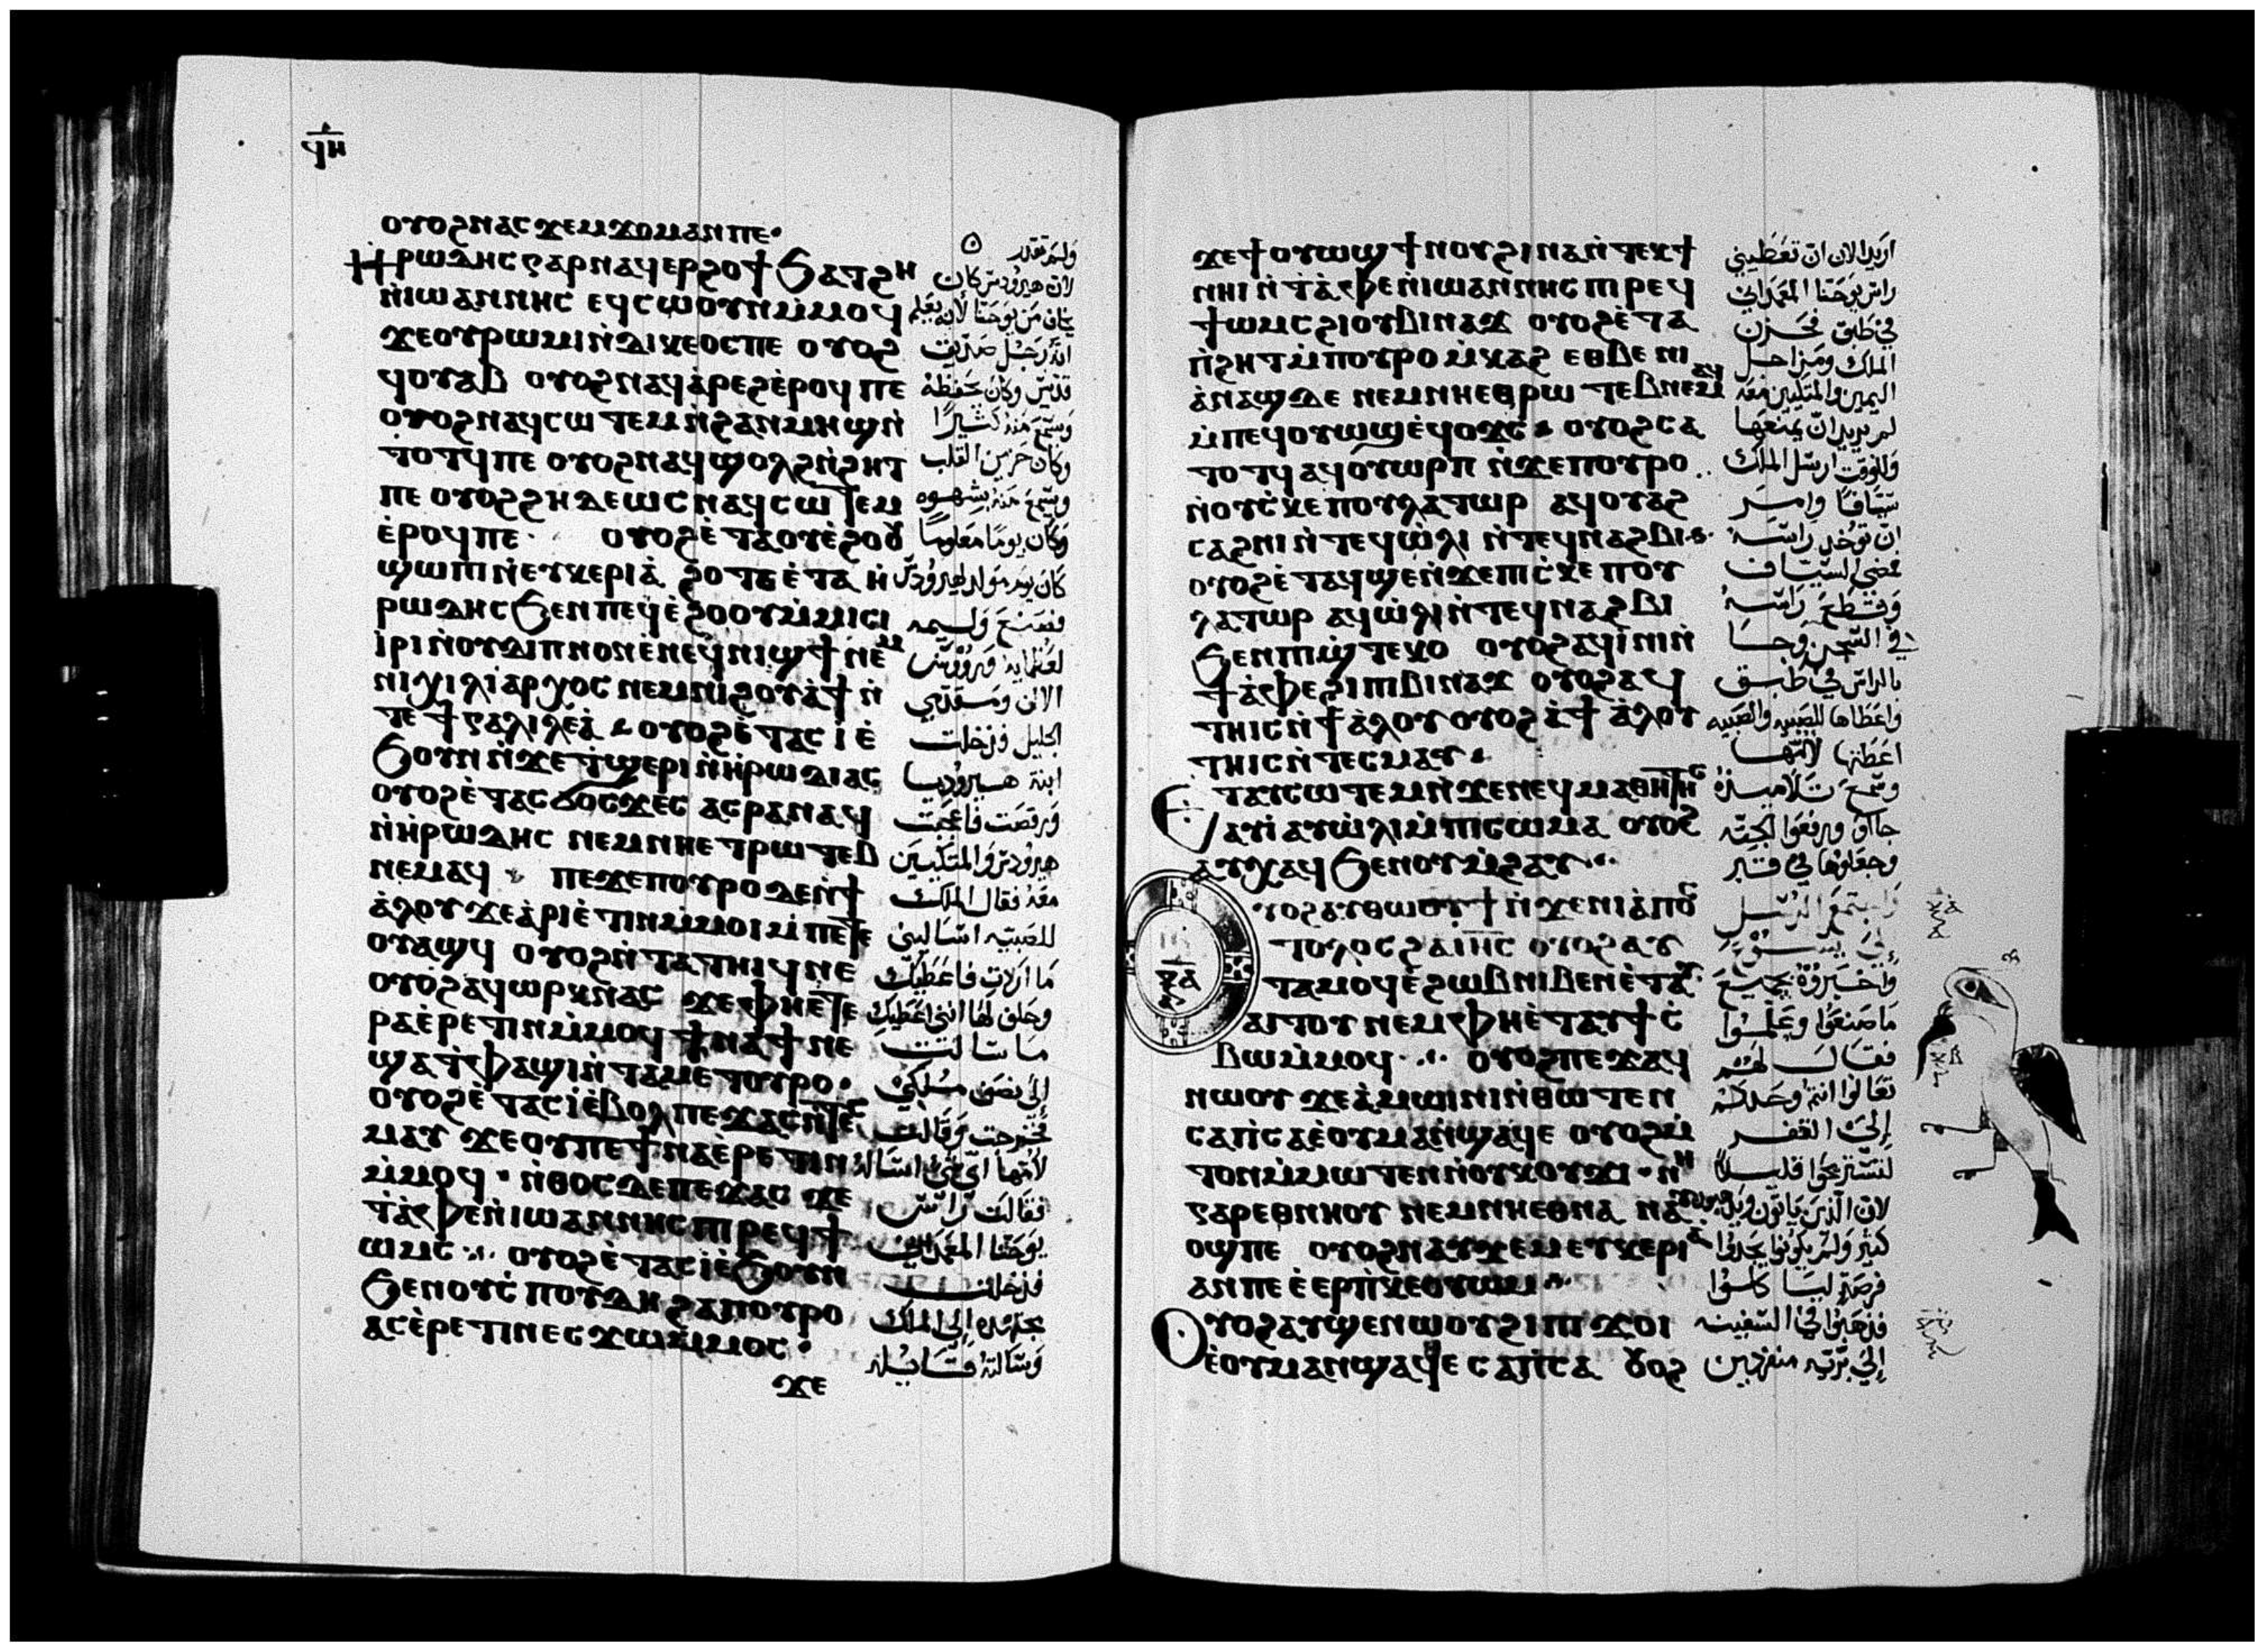 ϥⲏ
ⲟⲩⲟϩ ⲛⲁⲥϫⲉⲙϫⲟⲙ ⲁⲛ ⲡⲉ·
Ⲏⲣⲱⲇⲏⲥ ⲅⲁⲣ ⲛⲁϥⲉⲣϩⲟϯ ϧⲁⲧϩⲏ
ⲛ̀ⲓⲱⲁⲛⲛⲏⲥ ⲉϥⲥⲱⲟⲩⲛ ⲙ̀ⲙⲟϥ
ϫⲉ ⲟⲩⲣⲱⲙⲓ ⲛ̀ⲇⲓⲕⲉⲟⲥ ⲡⲉ ⲟⲩⲟϩ
ϥⲟⲩⲁⲃ ⲟⲩⲟϩ ⲛⲁϥⲁ̀ⲣⲉϩ ⲉ̀ⲣⲟϥ ⲡⲉ
ⲟⲩⲟϩ ⲛⲁϥⲥⲱⲧⲉⲙ ⲛ̀ϩⲁⲛⲙⲏϣ ⲛ̀
ⲧⲟⲧϥ ⲡⲉ ⲟⲩⲟϩ ⲛⲁϥϣⲟⲗϩ ⲛ̀ϩⲏⲧ
ⲡⲉ ⲟⲩⲟϩ ϩⲏⲇⲉⲱⲥ ⲛⲁϥⲥⲱⲧⲉⲙ
ⲉ̀ⲣⲟϥ ⲡⲉ· ⲟⲩⲟϩ ⲉ̀ⲧⲁ ⲟⲩⲉ̀ϩⲟⲟⲩ
ϣⲱⲡⲓ ⲛ̀ⲉⲩⲕⲉⲣⲓⲁ̀ ϩⲟⲧⲉ ⲉ̀ⲧⲁ ⲏ̀
ⲣⲱⲇⲏⲥ ϧⲉⲛ ⲡⲉϥⲉ̀ϩⲟⲟⲩ ⲙ̀ⲙⲓⲥⲓ
ⲓ̀ⲣⲓ ⲛ̀ⲟⲩⲇⲓⲡⲛⲟⲛ ⲉ̀ⲛⲉϥⲛⲓϣϯ ⲛⲉⲙ
ⲛⲓⲭⲓⲗⲓⲁⲣⲭⲟⲥ ⲛⲉⲙ ⲛⲓϩⲟⲩⲁ̀ϯ ⲛ̀
ⲧⲉ ϯⲅⲁⲗⲓⲗⲉⲁ̀ ⲟⲩⲟϩ ⲉ̀ⲧⲁⲥⲓ̀ ⲉ̀
ϧⲟⲩⲛ ⲛ̀ϫⲉ ⲧ̀ϣⲉⲣⲓ ⲛ̀ⲏⲣⲱⲇⲓⲁⲥ
ⲟⲩⲟϩ ⲉ̀ⲧⲁⲥϭⲟⲥϫⲉⲥ ⲁⲥⲣⲁⲛⲁϥ
ⲛ̀ⲏⲣⲱⲇⲏⲥ ⲛⲉⲙ ⲛⲏⲉⲧⲣⲱⲧⲉⲃ
ⲛⲉⲙⲁϥ ⲡⲉϫⲉ ⲡⲟⲩⲣⲟ ⲇⲉ ⲛ̀ϯ
ⲁ̀ⲗⲟⲩ ϫⲉ ⲁ̀ⲣⲓⲉ̀ⲧⲓⲛ ⲙ̀ⲙⲟⲓ ⲙ̀ⲡⲉⲧⲉ
ⲟⲩⲁϣϥ ⲟⲩⲟϩ ⲛ̀ⲧⲁⲧⲏⲓϥ ⲛⲉ
ⲟⲩⲟϩ ⲁϥⲱⲣⲕ ⲛⲁⲥ ϫⲉ ⲫⲏⲉⲧⲉ
ⲣⲁⲉ̀ⲣⲉⲧⲓⲛ ⲙ̀ⲙⲟϥ ϯⲛⲁϯ ⲛⲉ
ϣⲁ ⲧ̀ⲫⲁϣⲓ ⲛ̀ⲧⲁⲙⲉⲧⲟⲩⲣⲟ·
ⲟⲩⲟϩ ⲉ̀ⲧⲁⲥⲓ̀ ⲉ̀ⲃⲟⲗ ⲡⲉϫⲁⲥ ⲛ̀ⲧⲉⲥ
ⲙⲁⲩ ϫⲉ ⲟⲩ ⲡⲉϯⲛⲁⲉ̀ⲣⲉⲧⲓⲛ
ⲙ̀ⲙⲟϥ· ⲛ̀ⲑⲟⲥ ⲇⲉ ⲡⲉϫⲁⲥ ϫⲉ
ⲧ̀ⲁ̀ⲫⲉ ⲛ̀ⲓⲱⲁⲛⲛⲏⲥ ⲡⲓⲣⲉϥϯ
ⲱⲙⲥ ⲟⲩⲟϩ ⲉ̀ⲧⲁⲥⲓ̀ ⲉ̀ϧⲟⲩⲛ
ϧⲉⲛ ⲟⲩⲥ̀ⲡⲟⲩⲇⲏ ϩⲁ ⲡⲟⲩⲣⲟ
ⲁⲥⲉ̀ⲣⲉⲧⲓⲛ ⲉⲥϫⲱ ⲙ̀ⲙⲟⲥ·
ϫⲉ
ولم تقدر
لان هيرودس كان
يخاف من يوحنا لانه يعلم
انه رجل صديق
قديس وكان يحفظه
ويسمع منه كثيرًا
وكان حزين القلب
ويسمع منه بشهوه
وكان يومًا معلومًا
كان يوم مولد هيرودس
فصنع وليمه
لعظمايه وروس
الالف ومتقدمي
الجليل فدخلت
ابنة هيروديا
ورقصت فاعجبت
هيرودس والمتكيين
معه فقال الملك
للصبيه اساليني
ما اردت فاعطيك
وحلف لها انني اعطيك
ما سالت
إلى نصف مملكتي
فخرجت وقالت
لامها اي شي اساله
فقالت راس
يوحنا المعمداني
فدخلت
بجده إلى الملك
وسالته قايله
ϫⲉ ϯⲟⲩⲱϣ ϯⲛⲟⲩ ϩⲓⲛⲁ ⲛ̀ⲧⲉⲕϯ
ⲛⲏⲓ ⲛ̀ⲧ̀ⲁ̀ⲫⲉ ⲛ̀ⲓⲱⲁⲛⲛⲏⲥ ⲡⲓⲣⲉϥ
ϯⲱⲙⲥ ϩⲓ ⲟⲩⲃⲓⲛⲁϫ ⲟⲩⲟϩ ⲉ̀ⲧⲁ
ⲡ̀ϩⲏⲧ ⲙ̀ⲡⲟⲩⲣⲟ ⲙ̀ⲕⲁϩ ⲉⲑⲃⲉ ⲛⲓ
ⲁⲛⲁϣ ⲇⲉ ⲛⲉⲙ ⲛⲏⲉⲑⲣⲱⲧⲉⲃ ⲛⲉⲙⲁϥ
ⲙ̀ⲡⲉϥⲟⲩⲱϣ ⲉ̀ϥⲟϫⲥ ⲟⲩⲟϩ ⲥⲁ
ⲧⲟⲧϥ ⲁϥⲟⲩⲱⲣⲡ ⲛ̀ϫⲉ ⲡⲟⲩⲣⲟ
ⲛ̀ⲟⲩⲥ̀ⲕⲉⲡⲟⲩⲗⲁⲧⲱⲣ ⲁϥⲟⲩⲁϩ
ⲥⲁϩⲛⲓ ⲛ̀ⲧⲉϥⲱ̀ⲗⲓ ⲛ̀ⲧⲉϥⲛⲁϩⲃⲓ
ⲟⲩⲟϩ ⲉ̀ⲧⲁϥϣⲉ ⲛ̀ϫⲉ ⲡⲓⲥ̀ⲕⲉⲡⲟⲩ
ⲗⲁⲧⲱⲣ ⲁϥⲱ̀ⲗⲓ ⲛ̀ⲧⲉϥⲛⲁϩⲃⲓ
ϧⲉⲛ ⲡⲓϣ̀ⲧⲉⲕⲟ ⲟⲩⲟϩ ⲁϥⲓ̀ⲛⲓ ⲛ̀
ϯⲁ̀ⲫⲉ ϩⲓ ⲡⲓⲃⲓⲛⲁϫ ⲟⲩⲟϩ ⲁϥ
ⲧⲏⲓⲥ ⲛ̀ϯⲁ̀ⲗⲟⲩ ⲟⲩⲟϩ ⲁ̀ ϯⲁ̀ⲗⲟⲩ
ⲧⲏⲓⲥ ⲛ̀ⲧⲉⲥⲙⲁⲩ
Ⲉⲧⲁⲩⲥⲱⲧⲉⲙ ⲛ̀ϫⲉ ⲛⲉϥⲙⲁⲑⲏⲧⲏⲥ
ⲁⲩⲓ̀ ⲁⲩⲱ̀ⲗⲓ ⲙ̀ⲡⲓⲥⲱⲙⲁ ⲟⲩⲟϩ
ⲁⲩⲭⲁϥ ϧⲉⲛ ⲟⲩⲙ̀ϩⲁⲩ
ⲩⲟϩ ⲁⲩⲑⲱⲟⲩϯ ⲛ̀ϫⲉ ⲛⲓⲁ̀ⲡⲟⲥ
ⲧⲟⲗⲟⲥ ϩⲁ ⲓⲏⲥ ⲟⲩⲟϩ ⲁⲩ
ⲧⲁⲙⲟϥ ⲉ̀ϩⲱⲃ ⲛⲓⲃⲉⲛ ⲉ̀ⲧⲁⲩ
ⲁⲓⲧⲟⲩ ⲛⲉⲙ ⲫⲏⲉ̀ⲧⲁⲩϯⲥ̀
ⲃⲱ ⲙ̀ⲙⲟϥ ⲟⲩⲟϩ ⲡⲉϫⲁϥ
ⲛⲱⲟⲩ ϫⲉ ⲁ̀ⲙⲱⲓⲛⲓ ⲛ̀ⲑⲱⲧⲉⲛ
ⲥⲁⲡ̀ⲥⲁ ⲉ̀ⲟⲩⲙⲁ ⲛ̀ϣⲁϥⲉ ⲟⲩⲟϩ ⲙ̀
ⲧⲟⲛ ⲙ̀ⲙⲱⲧⲉⲛ ⲛ̀ⲟⲩⲕⲟⲩϫⲓ· ⲛⲏ
ⲅⲁⲣ ⲉⲑⲛⲏⲟⲩ ⲛⲉⲙ ⲛⲏⲉⲑⲛⲁ ⲛⲁ
ⲟϣ ⲡⲉ ⲟⲩⲟϩ ⲛⲁⲩϫⲉⲙ ⲉⲩⲕⲉⲣⲓⲁ
ⲁⲛ ⲡⲉ ⲉ̀ⲉⲣⲡ̀ⲕⲉⲟⲩⲱⲙ
Ⲟⲩⲟϩ ⲁⲩϣⲉⲛⲱⲟⲩ ϩⲓ ⲡⲓϫⲟⲓ
ⲉ̀ⲟⲩⲙⲁ ⲛ̀ϣⲁϥⲉ ⲥⲁⲡ̀ⲥⲁ ⲟⲩⲟϩ
اريد الان ان تعطيني
راس يوحنا المعمداني
في طبق فحزن
الملك ومن اجل
اليمين والمتكيين معه
لم يريد ان يمنعها
وللوقت ارسل الملك
سيافًا وامر
ان توخد راسه
فمضى السياف
وقطع راسه
في السجن وجا
بالراس في طبق
واعطاها للصبيه والصبيه
اعطتها لامها
وسمع تلاميذه
جااو ورفعوا الجثه
وجعلوها في قبر
واجتمع الرسل
إلى يسوع
واخبروه بجميع
ما صنعوا وعلموا
فقال لهم
تعالوا انتم وحدكم
إلى القفر
لتستريحوا قليلاً
كثير ولم يكونوا يجدوا
فرصة ليا كلوا
فذهبوا في السفينه
إلى بريه منفردين
ⲝⲁ
ⲝⲃ